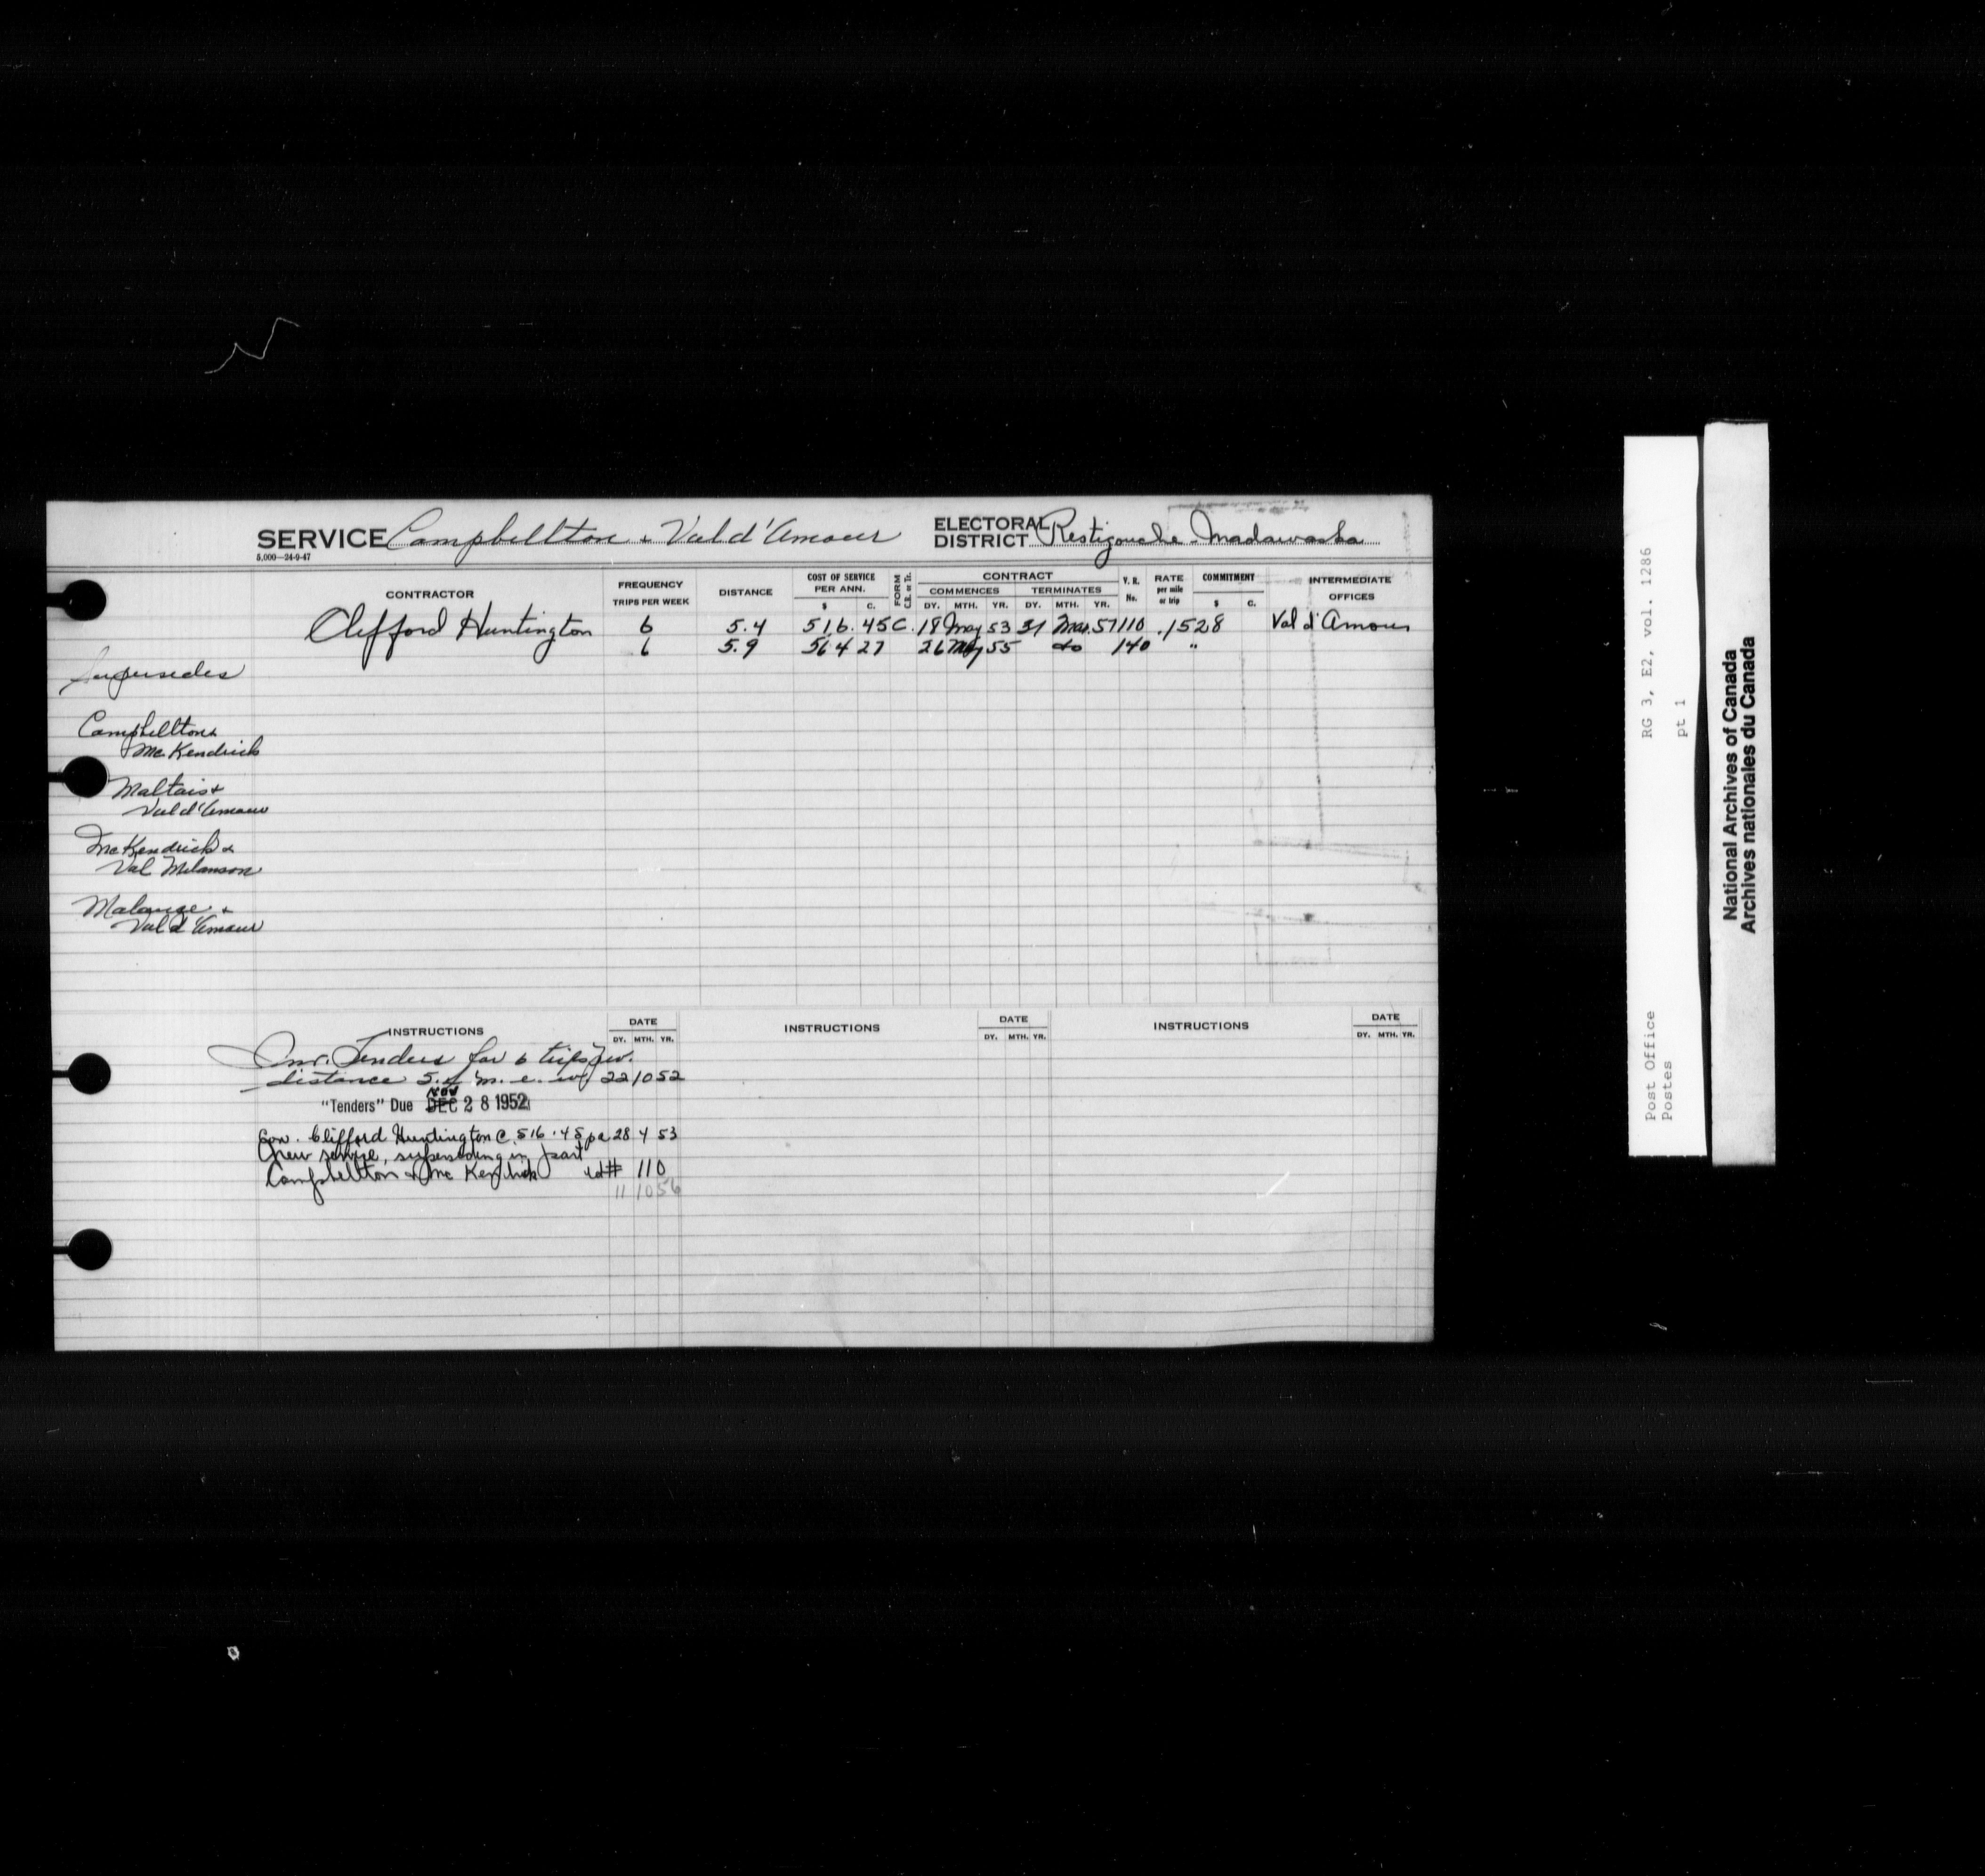 SERVICE Campbellton & Val d'Amour ELECTORAL DISTRICT Restigouche-Madawaska
5,000—24-9-47
CONTRACTOR FREQUENCY TRIPS PER WEEK DISTANCE COST OF SERVICE PER ANN. $ C. FORM C.R. or Tr. CONTRACT COMMENCES DY. MTH. YR. TERMINATES DY. MTH. YR. V. R. No. RATE per mile or trip COMMITMENT $ C. INTERMEDIATE OFFICES
Clifford Huntington 6 5.4 516.45 C. 18 May 53 31 Mar. 57 110 .1528 Val d'Amour
6 5.9 564 27 26 May 55 do 140 "
Supersedes
Campbellton &
McKendrick
Maltais &
Val d'Amour
McKendrick &
Val Melanson
Malauze &
Val d'Amour
INSTRUCTIONS DATE DY. MTH. YR. INSTRUCTIONS DATE DY. MTH. YR. INSTRUCTIONS DATE DY. MTH. YR.
Inv. Tenders for 6 tripspw.
distance 5.4 m. e. w. 22 10 52
NOV
"Tenders" Due DEC 28 1952
Con. Clifford Huntington @ 516.45 pa 28 4 53
(new service, superseding in part
Campbellton & McKendrick #110
11 10 56
RG 3, E2, vol. 1286
pt 1
Post Office
Postes
National Archives of Canada
Archives nationales du Canada